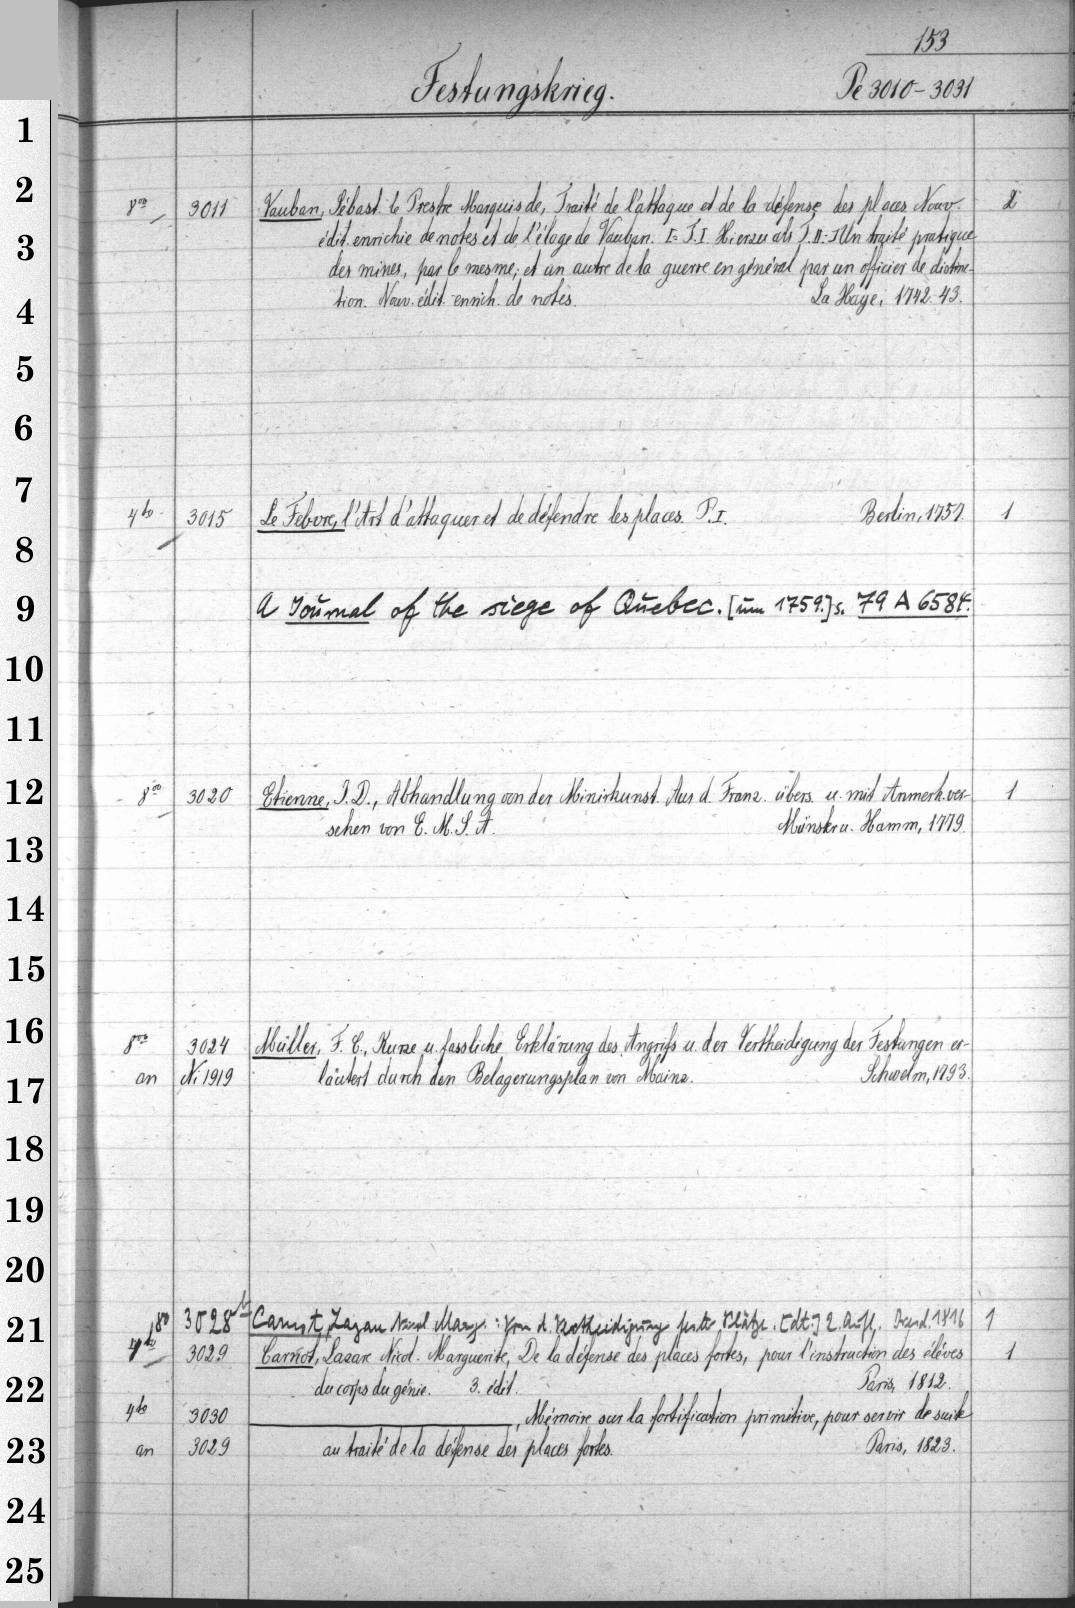 153
Festungskrieg. Pe 3010-3031
1
2
8vo 3011 Vauban, Sébast. le Prestre Marquis de, Traité de l'attaque et de la défense des places Nouv. 2
3 édit. enrichie de notes et de l'éloge de Vauban. I-T.I Hierzu als T.II: Un traité pratique
des mines, par le mesme, et un autre de la guerre en général par un officier de distinc-
4 tion. Nouv. édit. enrich. de notes. La Haye, 1742. 43.
5
6
7
4to 3015 Le Febvre, l'Art d'attaquer et de défendre les places. P.I. Berlin, 1757. 1
8
9 A Journal of the siege of Quebec. [um 1759.] s. 79 A 6584.
10
11
12 8vo 3020 Etienne, J.D., Abhandlung von der Minirkunst. Aus d. Franz. übers. u. mit Anmerk. ver- 1
sehen von E. M. S. A. Münster u. Hamm, 1779.
13
14
15
16 8vo 3024 Müller, F. C., Kurze u. fassliche Erklärung des Angriffs u. der Vertheidigung der Festungen er-
17 an Ni 1919 läutert durch den Belagerungsplan von Mainz. Schwelm, 1793.
18
19
20
21 80 3028 Carnot, Lazare Marg.: Von d. Vertheidigung fester Plätze. [dt.] 2. Aufl. 1816 1
4to 3029 Carnot, Lazare Nicol. Marguerite, De la défense des places fortes, pour l'instruction des éléves 1
22 du corps du génie. 3. édit. Paris, 1812.
4to 3030 , Mémoire sur la fortification primitive, pour servir de suite
23 an 3029 au traité de la défense des places fortes. Paris, 1823.
24
25